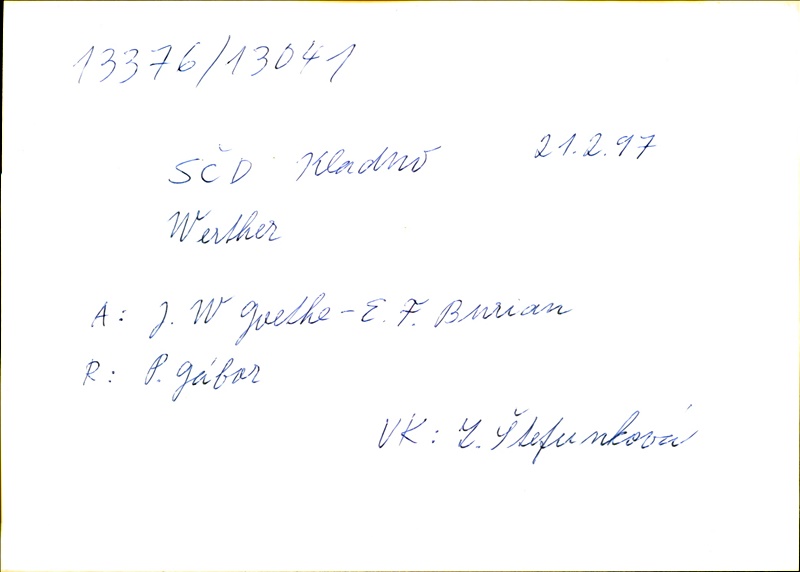 13376/13041
SČD Kladno 21.2.97
Werther
A: J. W Goethe - E. F. Burian
R: P. Gábor
VK: Z. Štefunková